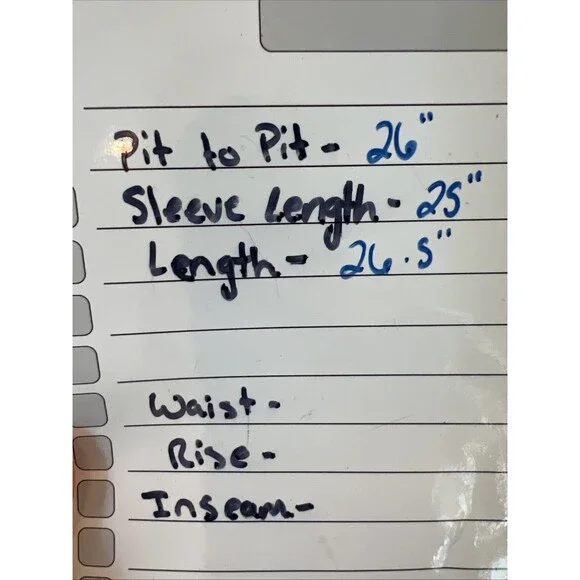 Pit to Pit - 26"
Sleeve Length - 25"
Length - 26.5"
Waist -
Rise -
Inseam -